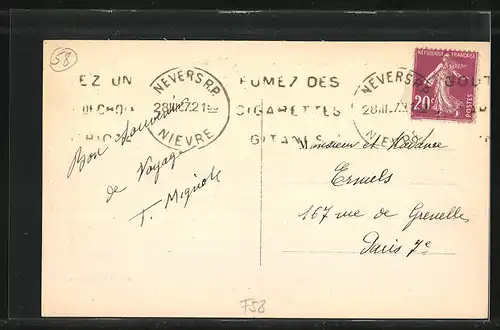 58
EZ UN
NEVERS R.P.
28 III 27 21
NIEVRE
FUMEZ DES
CIGARETTES
GITANES
NEVERS R.P.
28 III
GOUT
REPUBLIQUE FRANÇAISE
20c
POSTES
Bon souvenir
de Voyage
T. Mignot
Monsieur et Madame
Ermels
167 rue de Grenelle
Paris 7e
F58